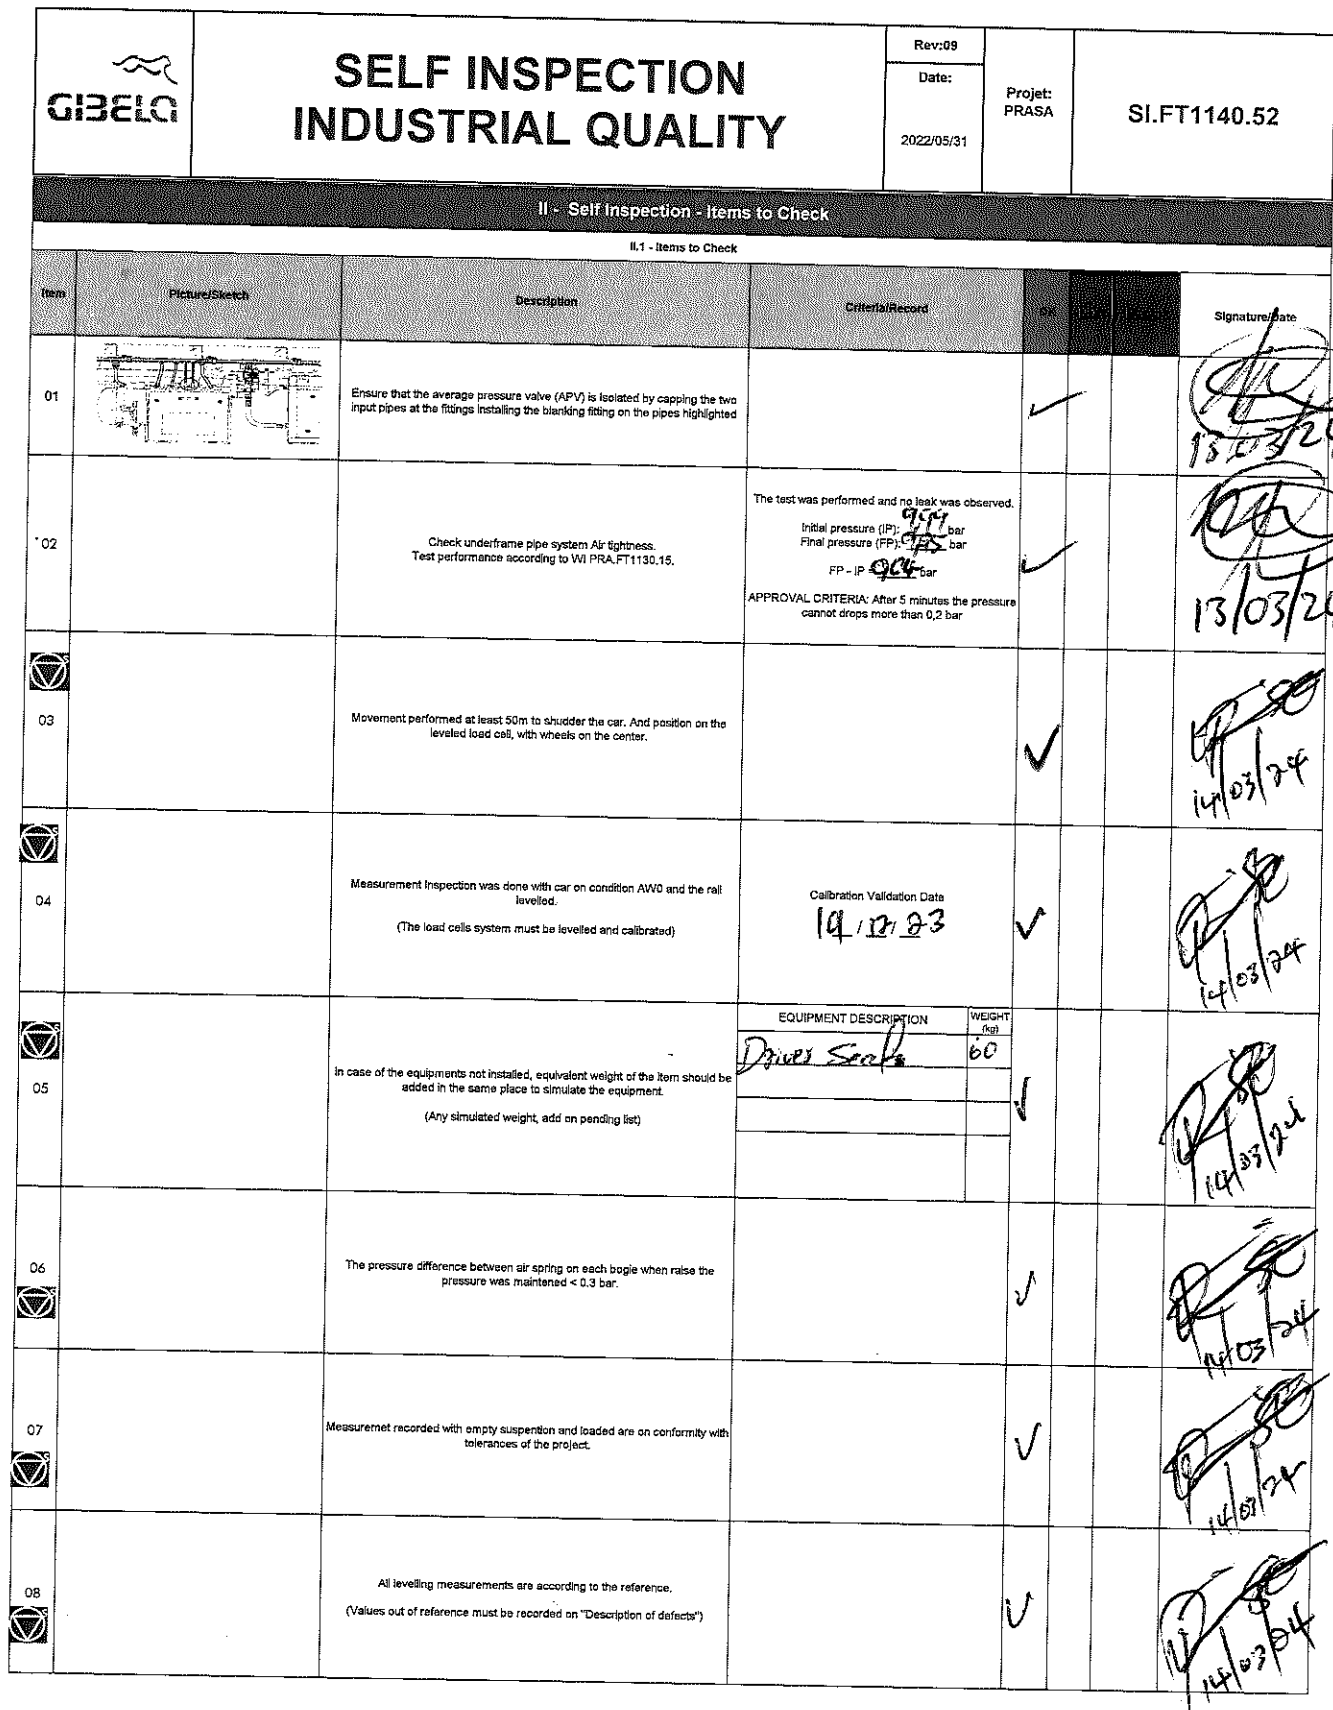 GIBELA
SELF INSPECTION
INDUSTRIAL QUALITY
Rev:09
Date:
2022/05/31
Projet:
PRASA
SI.FT1140.52
II - Self Inspection - Items to Check
II.1 - Items to Check
Item
Picture/Sketch
Description
Criteria/Record
OK
Signature/Date
01
Ensure that the average pressure valve (APV) is isolated by capping the two
input pipes at the fittings installing the blanking fitting on the pipes highlighted
13/03/24
02
Check underframe pipe system Air tightness.
Test performance according to WI PRA.FT1130.15.
The test was performed and no leak was observed.
Initial pressure (IP): bar
Final pressure (FP): bar
FP - IP = bar
APPROVAL CRITERIA: After 5 minutes the pressure
cannot drops more than 0,2 bar
13/03/24
03
Movement performed at least 50m to shudder the car. And position on the
leveled load cell, with wheels on the center.
14/03/24
04
Measurement Inspection was done with car on condition AW0 and the rail
levelled.
(The load cells system must be levelled and calibrated)
Calibration Validation Date
14/03/24
05
In case of the equipments not installed, equivalent weight of the item should be
added in the same place to simulate the equipment.
(Any simulated weight, add on pending list)
EQUIPMENT DESCRIPTION
WEIGHT
(kg)
Driver Seat
60
14/03/24
06
The pressure difference between air spring on each bogie when raise the
pressure was maintened < 0.3 bar.
14/03/24
07
Measuremet recorded with empty suspention and loaded are on conformity with
tolerances of the project.
14/03/24
08
All levelling measurements are according to the reference.
(Values out of reference must be recorded on "Description of defects")
14/03/24